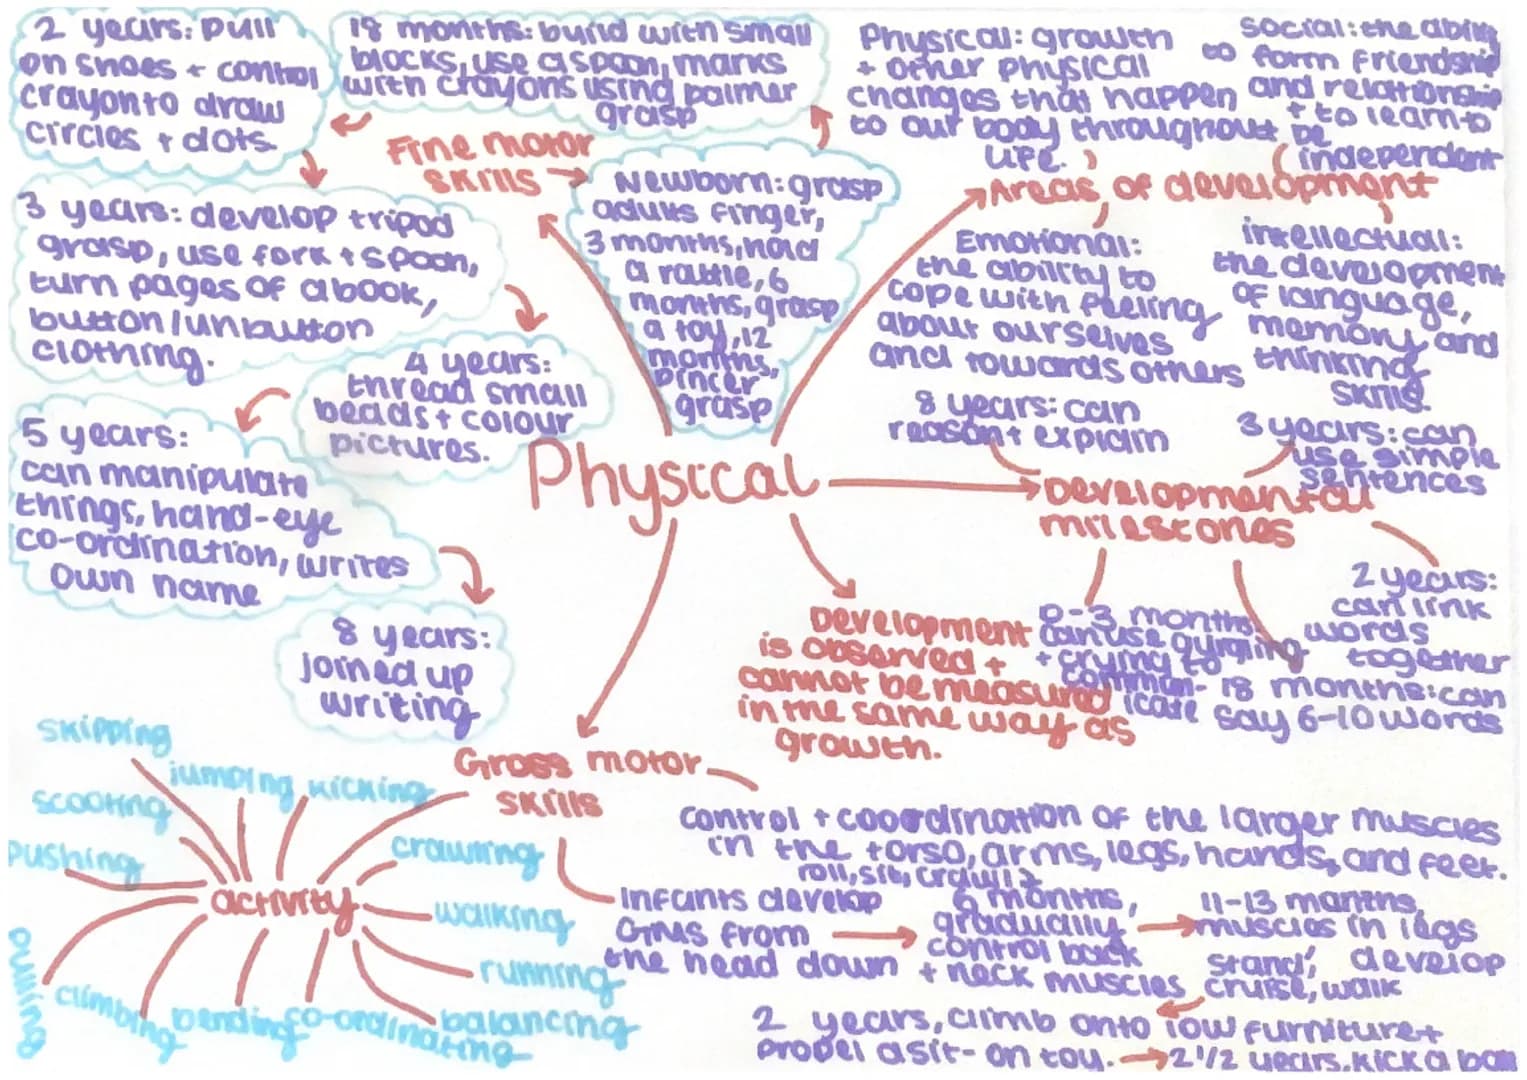 Physical
Fine motor
skills
Newborn: grasp
adults finger,
3 months, hold
a rattle, 6
months, grasp
a toy, 12
months,
pincer
grasp
18 months: build with small
blocks, use a spoon, marks
with crayons using palmer
grasp
2 years: pull
on shoes + control
crayon to draw
circles + dots.
3 years: develop tripod
grasp, use fork + spoon,
turn pages of a book,
button/unbutton
clothing.
4 years:
thread small
beads + colour
pictures.
5 years:
can manipulate
things, hand-eye
co-ordination, writes
own name
8 years:
joined up
writing
Areas of development
Physical: growth
+ other physical
changes that happen
to our body throughout
life.
Social: the ability
to form friendship
and relationship
+ to learn to
be
independent
Emotional:
the ability to
cope with feeling
about ourselves
and towards others
intellectual:
the development
of language,
memory and
thinking
skills.
Developmental
milestones
8 years: can
reason + explain
3 years: can
use simple
sentences
2 years:
can link
words
together
18 months: can
say 6-10 words
0-3 months
can use
+ crying to
commun-
icate
Development
is observed +
cannot be measured
in the same way as
growth.
Gross motor
skills
control + coordination of the larger muscles
in the torso, arms, legs, hands, and feet.
Infants develop
GMS from
the head down
roll, sit, crawl
6 months,
gradually
control back
+ neck muscles
11-13 months,
muscles in legs
develop
stand,
cruise, walk
2 years, climb onto low furniture +
propel a sit-on toy.
2 1/2 years, kick a ball
activity
skipping
jumping
kicking
scooting
crawling
pushing
walking
pulling
running
climbing
bending
co-ordinating
balancing